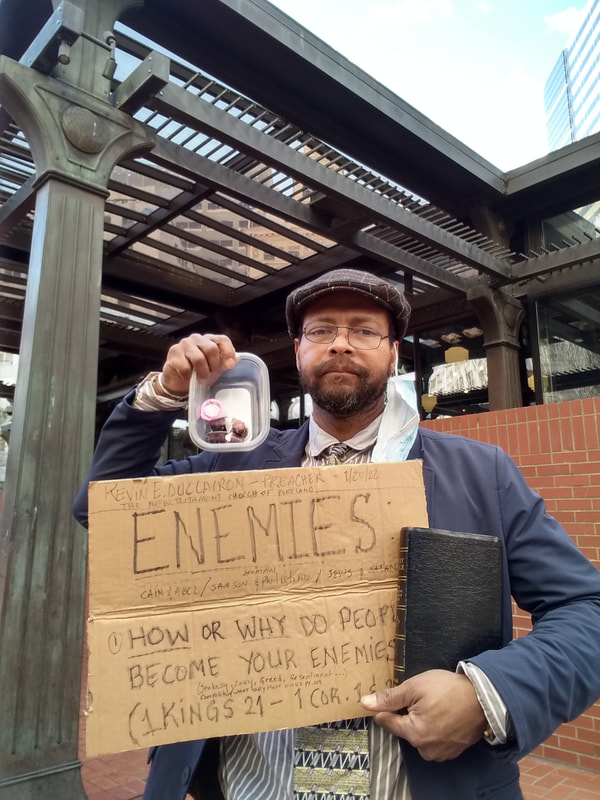 KEVIN E. DULCAIRON - PREACHER - 1/20/22
THE NEW TESTAMENT CHURCH OF PORTLAND
ENEMIES:
CAIN & ABEL / SAMSON & / JESUS &
① HOW OR WHY DO PEOPL
BECOME YOUR ENEMIES
(Jealousy, Envy, Greed, Resentment...)
(1 KINGS 21 - 1 COR. 1 &